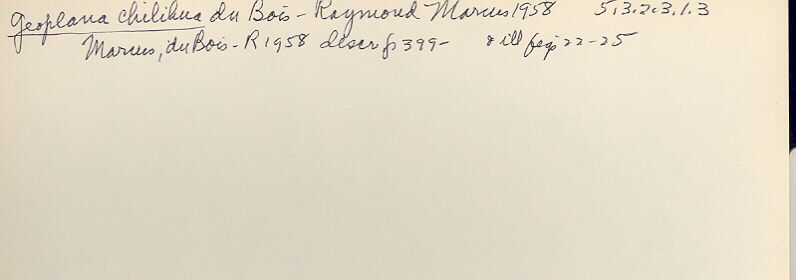 Geoplana chilihua du Bois-Raymond Marcus 1958 5.3.2.3.1.3
Marcus, du Bois-R 1958 descr p 399- & ill figs 22-25